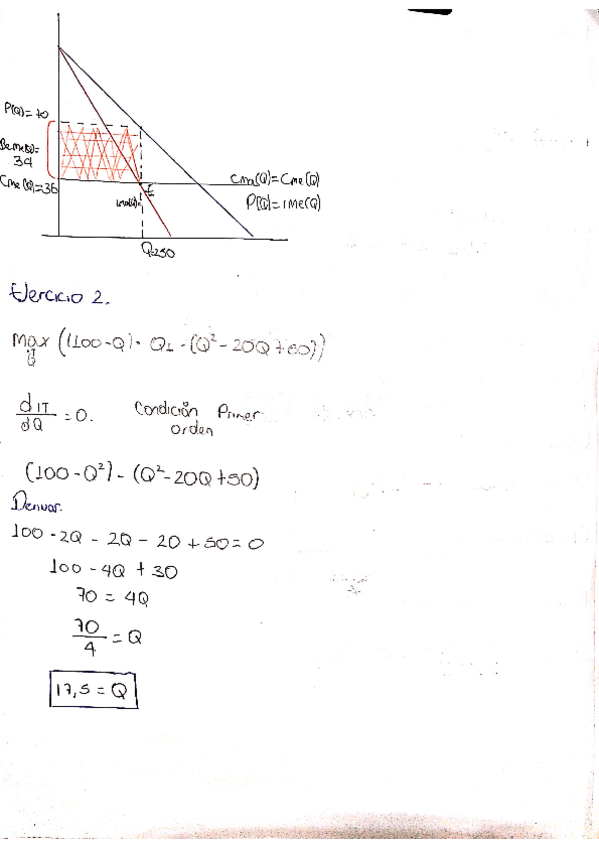 P(Q)=70
Beme(Q)=
34
Cme(Q)=36
Cma(Q)=Cme(Q)
P(Q)=IMe(Q)
Ima(Q)
E
Q=250
Ejercicio 2.
Max ((100-Q)· Q - (Q²-20Q+50))
Q
dπ/dQ = 0. Condición Primer
orden
(100-Q²) - (Q²-20Q+50)
Derivar.
100-2Q-2Q-20+50=0
100-4Q+30
70=4Q
70/4=Q
17,5=Q